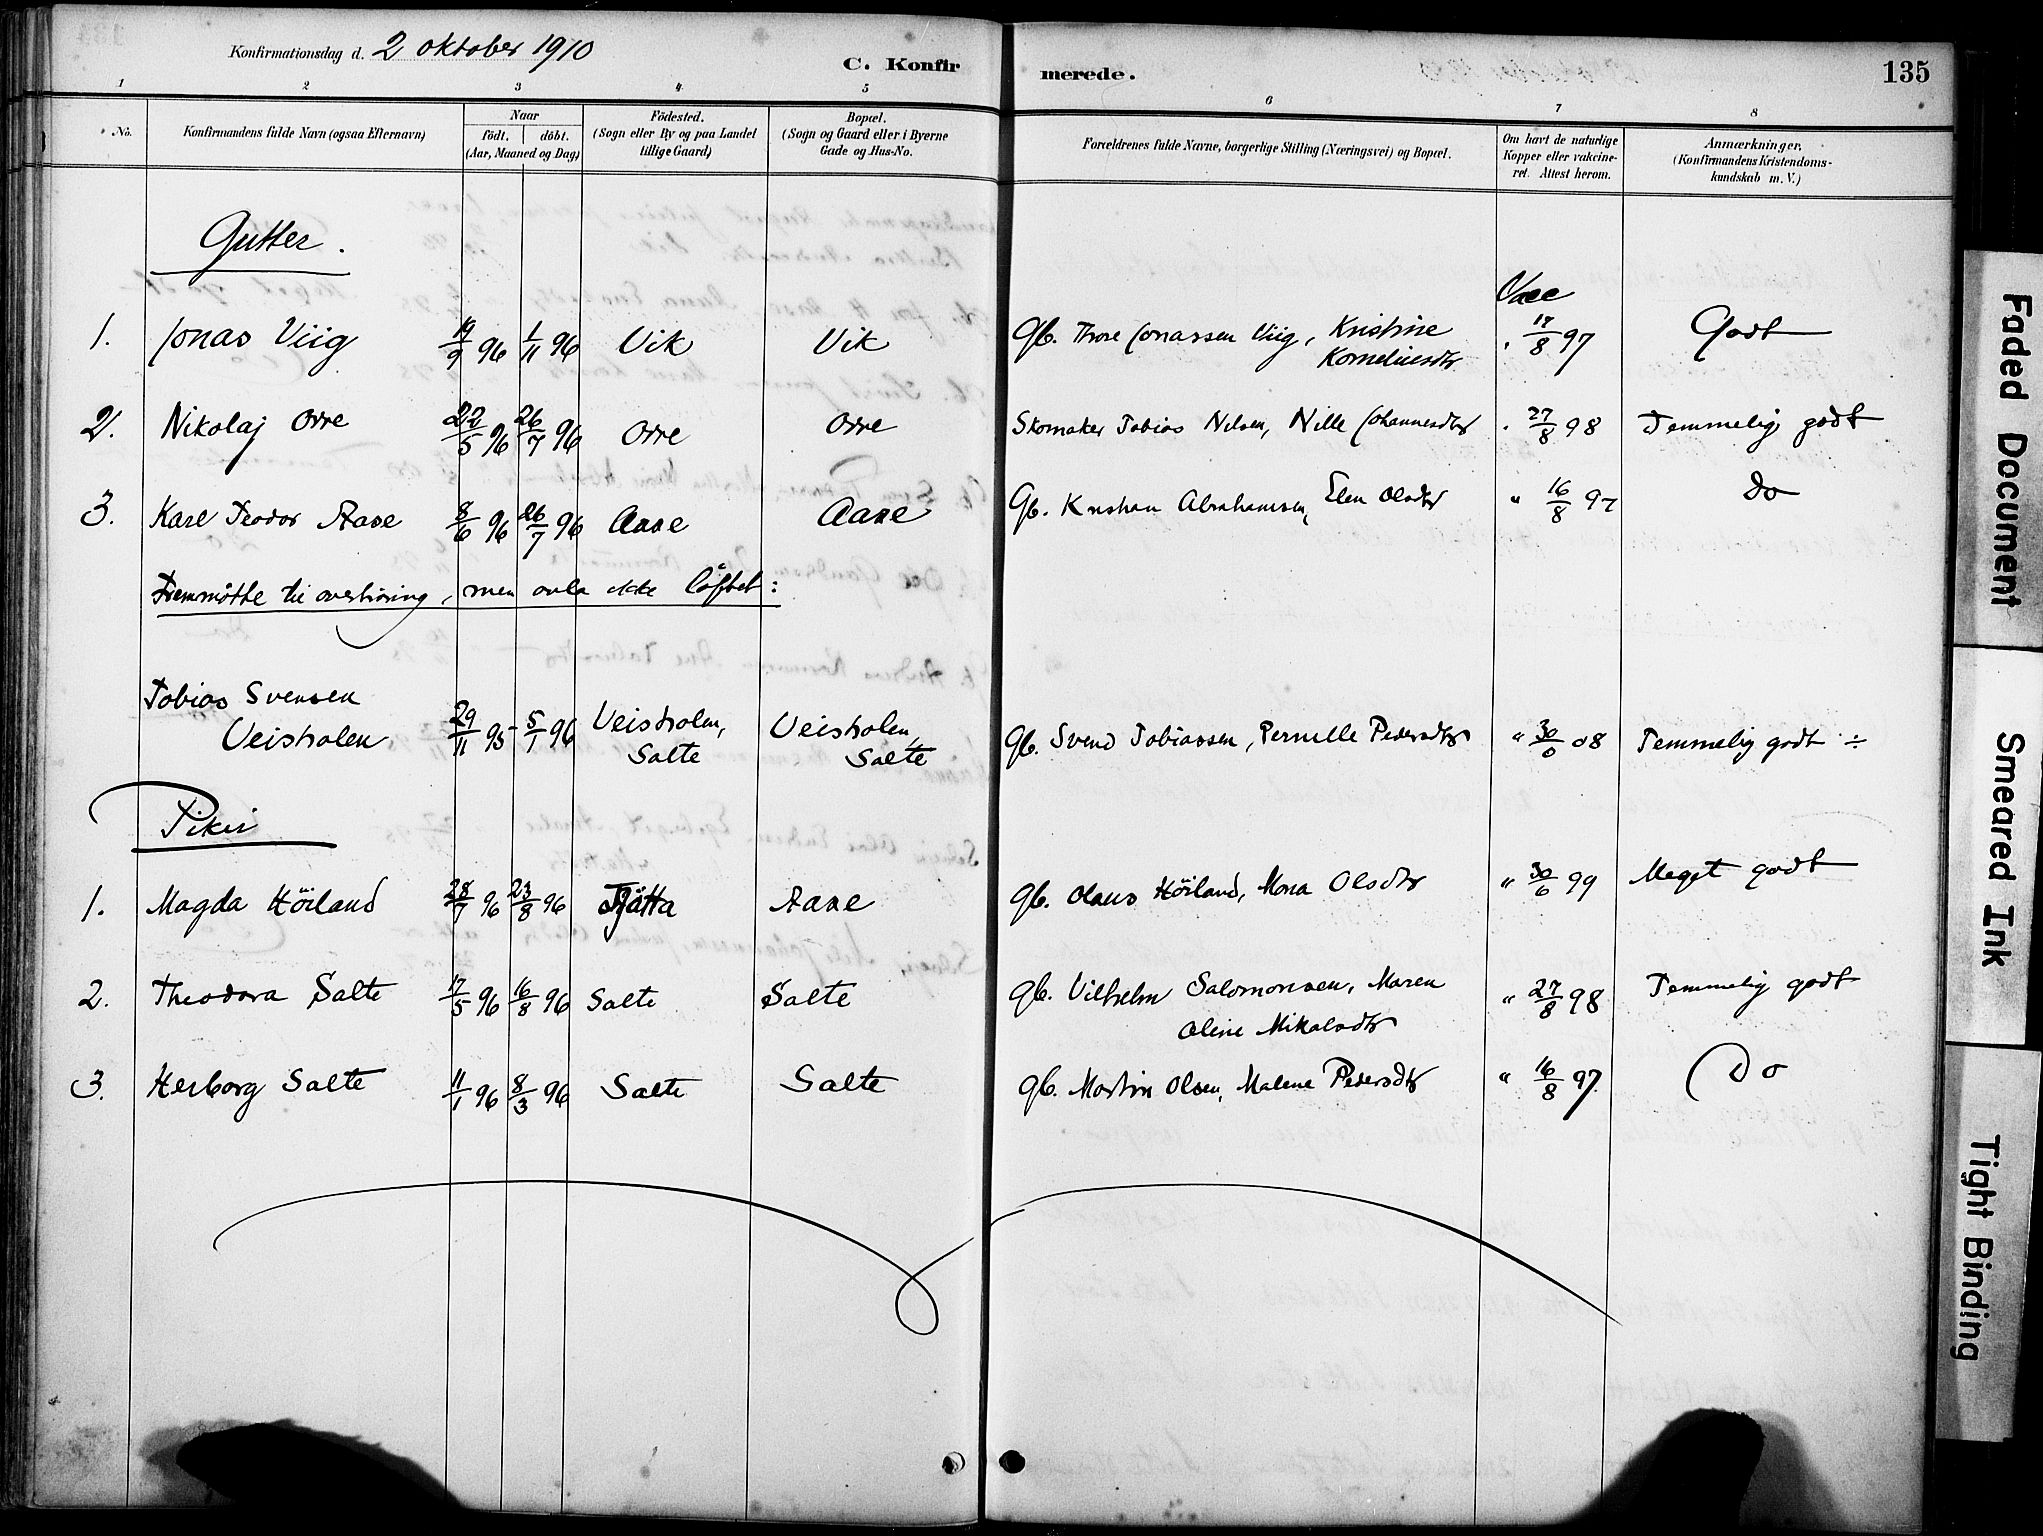 Konfirmationsdag d. 2 oktober 1910
C. Konfirmerede.
135
1 2 3 4 5 6 7 8
No.
Konfirmandens fulde Navn (ogsaa Efternavn)
Naar
födt. döbt.
(Aar, Maaned og Dag)
Födested.
(Sogn eller By og paa Landet
tillige Gaard)
Bopæl.
(Sogn og Gaard eller i Byerne
Gade og Hus-No.
Forældrenes fulde Navne, borgerlige Stilling (Næringsvei) og Bopæl.
Om havt de naturlige
Kopper eller vakcine-
ret. Attest herom.
Anmærkninger.
(Konfirmandens Kristendoms-
kundskab m. V.)
Gutter.
Vacc
1. Jonas Viig 19/9 96 1/11 96 Vik Vik Gb. Thore Jonassen Viig, Kristine
Korneliusdtr 17/8 97 Godt
2. Nikolaj Orre 22/5 96 26/7 96 Orre Orre Skomaker Tobias Nilsen, Nille Johannesdtr 27/8 98 Temmelig godt
3. Karl Teodor Aase 8/6 96 26/7 96 Aase Aase Gb. Kristian Abrahamsen, Elen Olsdtr " 16/8 97 Do
Fremmötte til overhöring, men avla ikke löftet:
Tobias Svensen
Veisholen 29/11 95 5/1 96 Veisholen, Salte Veisholen, Salte Gb. Svend Tobiassen, Pernille Pedersdtr " 30/6 08 Temmelig godt ÷
Piker
1. Magda Höiland 28/7 96 23/8 96 Tjötta Aase Gb. Olaus Höiland, Mona Olsdtr " 30/6 99 Meget godt
2. Theodora Salte 17/5 96 16/8 96 Salte Salte Gb. Vilhelm Salomonsen, Maren
Oline Mikalsdtr " 27/8 98 Temmelig godt
3. Herborg Salte 11/1 96 8/3 96 Salte Salte Gb. Martin Olsen, Malene Pedersdtr " 16/8 97. Do
Faded Document
Smeared Ink
Tight Binding